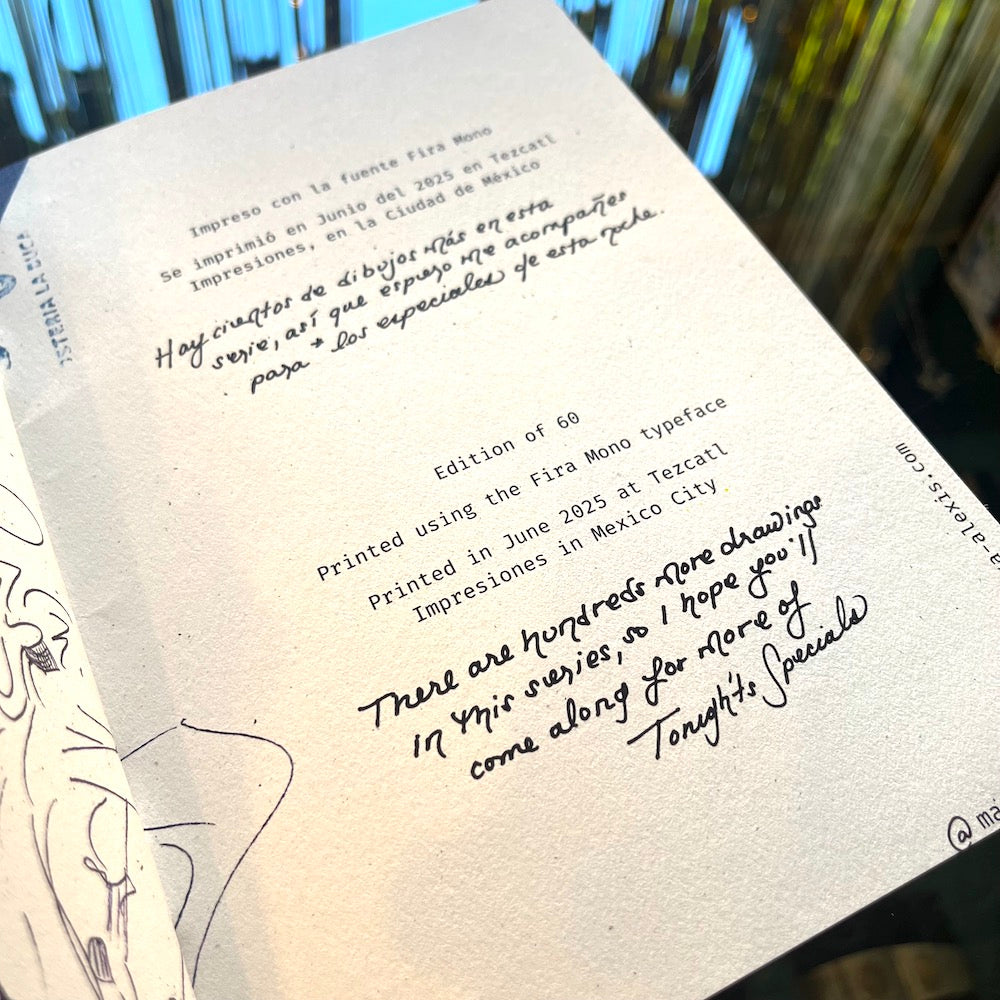 Impreso con la fuente Fira Mono
Se imprimió en Junio del 2025 en Tezcatl
Impresiones, en la Ciudad de México
Hay cientos de dibujos más en esta
serie, así que espero me acompañes
para + los especiales de esta noche.
Edition of 60
Printed using the Fira Mono typeface
Printed in June 2025 at Tezcatl
Impresiones in Mexico City
There are hundreds more drawings
in this series, so I hope you'll
come along for more of
Tonight's Specials
STERIA LA
a-alexis.com
@ma